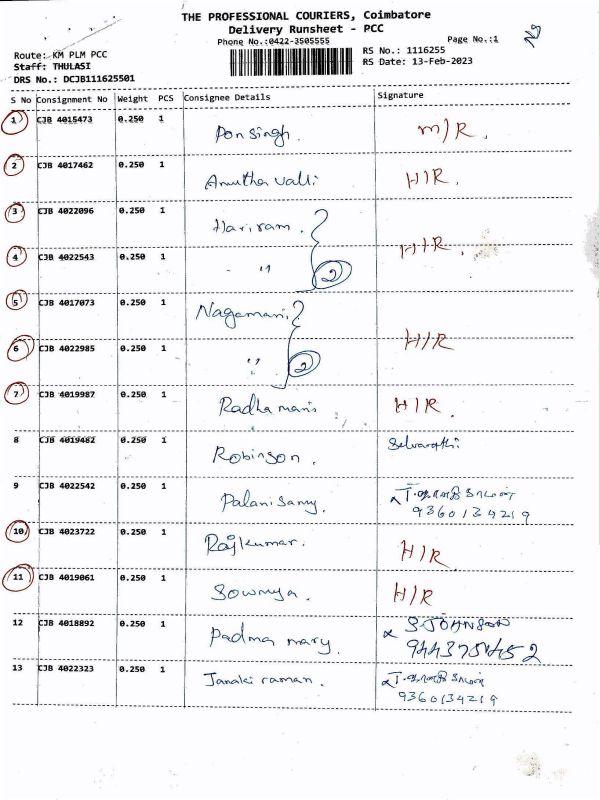 THE PROFESSIONAL COURIERS, Coimbatore
Delivery Runsheet - PCC
Phone No.:0422-3505555
Page No.:1
Route: KM PLM PCC
Staff: THULASI
DRS No.: DCJB111625501
RS No.: 1116255
RS Date: 13-Feb-2023
S No Consignment No Weight PCS Consignee Details Signature
1 CJB 4015473 0.250 1 Ponsingh. M/R.
2 CJB 4017462 0.250 1 Amutha valli H/R.
3 CJB 4022096 0.250 1 Hariram.
4 CJB 4022543 0.250 1 - " 2 H/R.
5 CJB 4017073 0.250 1 Nagamani
6 CJB 4022985 0.250 1 " 2 H/R
7 CJB 4019987 0.250 1 Radhamani H/R.
8 CJB 4019482 0.250 1 Robinson. Selvarathi
9 CJB 4022542 0.250 1 Palanisamy.
9360134219
10 CJB 4023722 0.250 1 Rajkumar. H/R
11 CJB 4019061 0.250 1 Sowmya. H/R
12 CJB 4018892 0.250 1 Padma mary. S. JOHNSON
13 CJB 4022323 0.250 1 Janaki raman.
9360134219